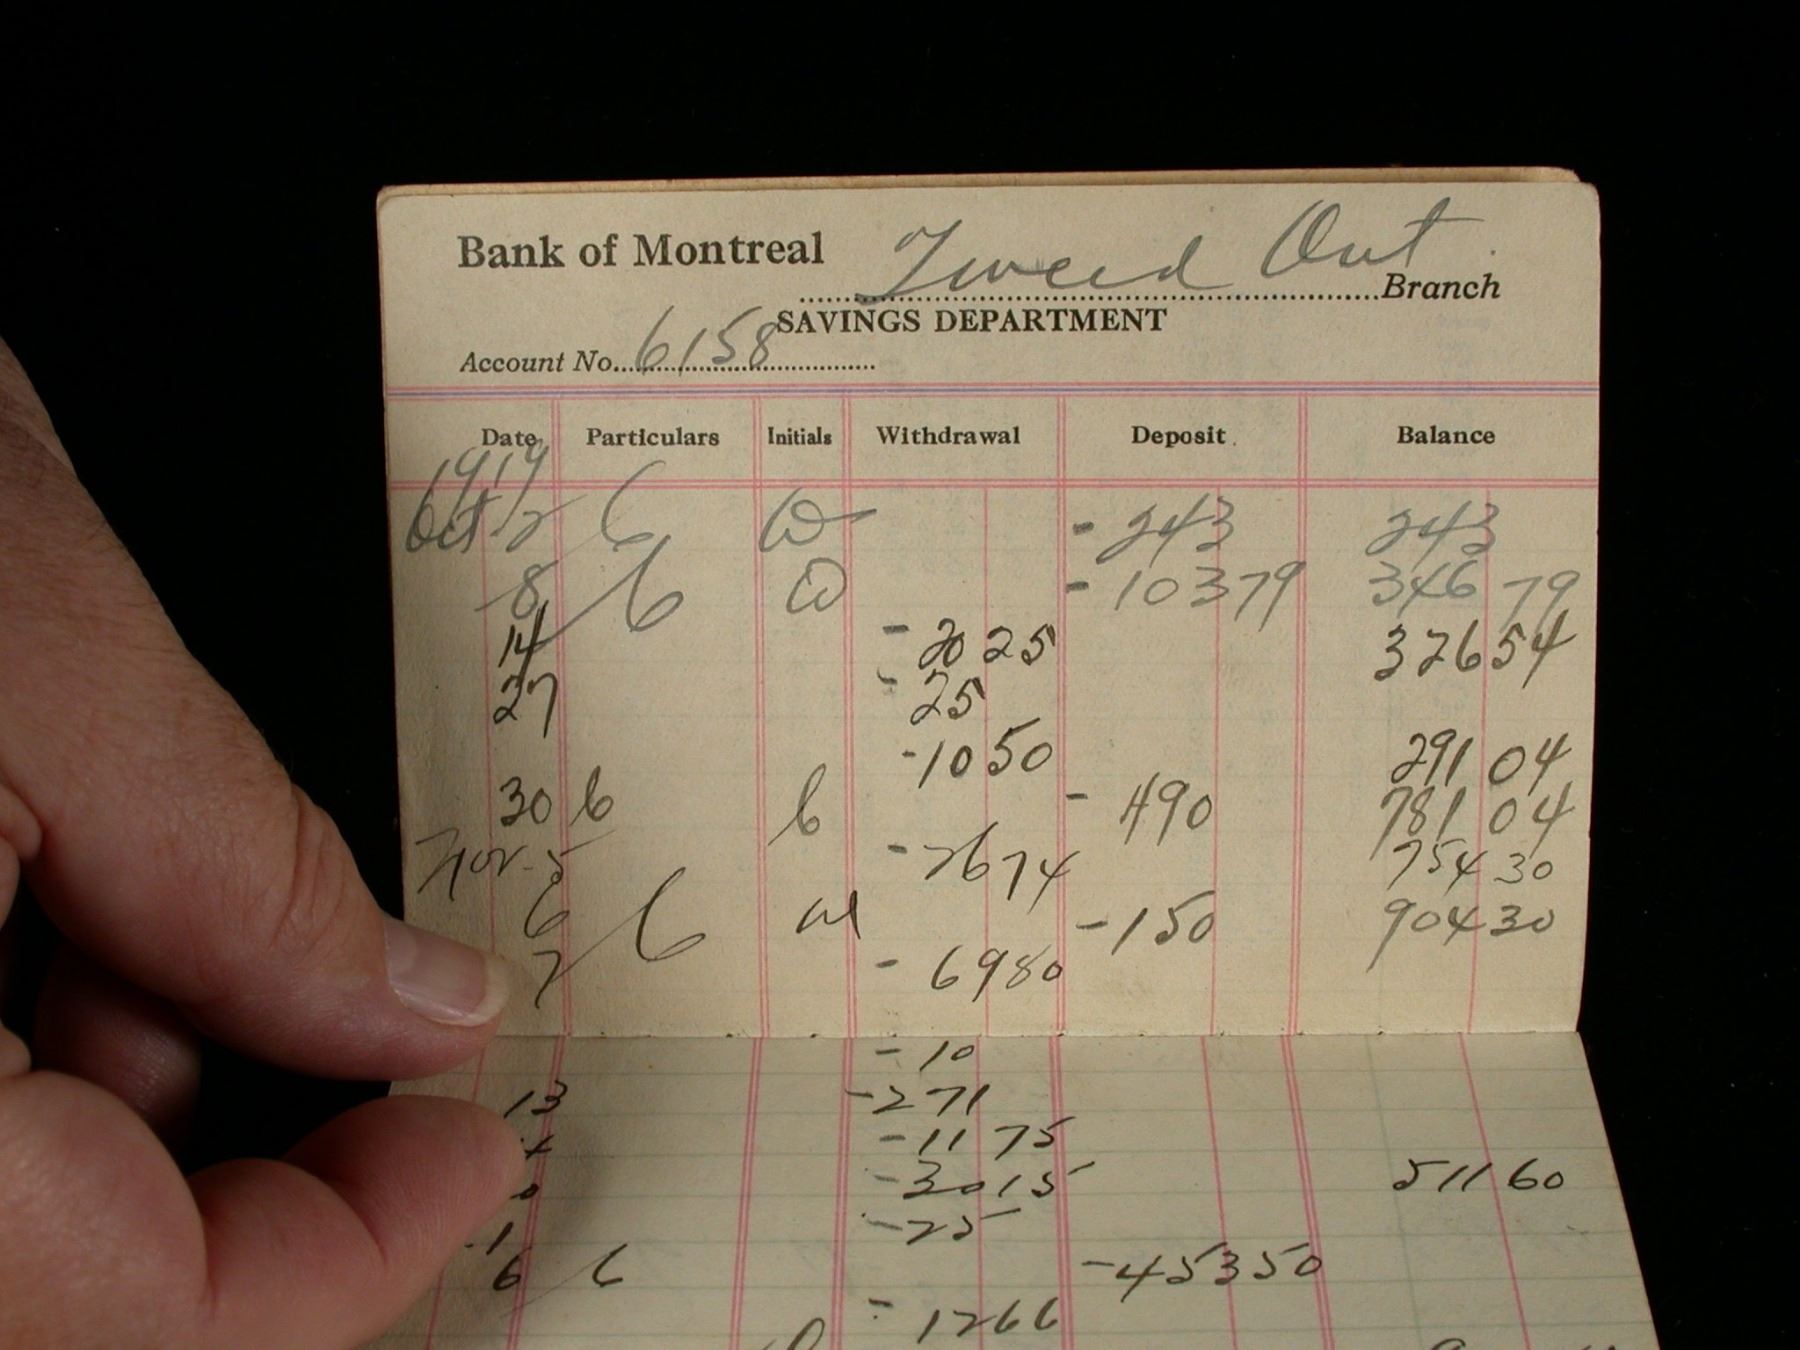 Bank of Montreal Tweed Ont Branch
SAVINGS DEPARTMENT
Account No. 6158
Date Particulars Initials Withdrawal Deposit Balance
1919
Oct 2 - 243 243
8 - 103 79 346 79
14 - 20 25 326 54
27 - 25
- 10 50 291 04
30 - 490 781 04
Nov. 5 - 26 74 754 30
6 - 150 904 30
7 - 69 80
- 10
13 - 271
- 11 75
- 30 15 511 60
- 25
6 - 453 50
- 12 66